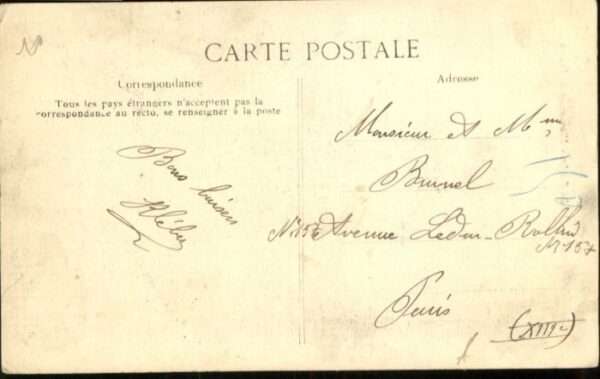 CARTE POSTALE
Correspondance
Tous les pays étrangers n'acceptent pas la
correspondance au recto, se renseigner à la poste
Bons baisers
Kléber
Adresse
Monsieur et Mme
Brunel
Avenue Ledru-Rollin
N° 157
Paris
(XIIIe)